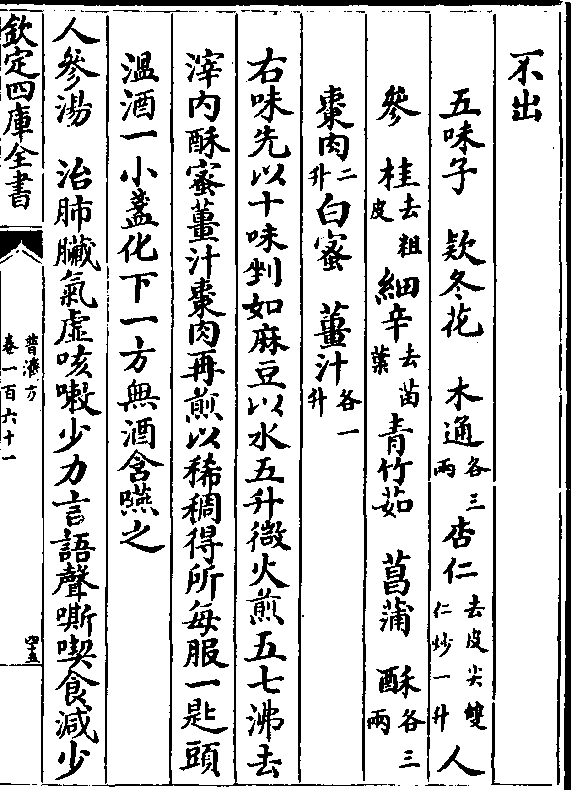 不出
五味子 欵冬花 木通各三兩 杏仁去皮尖雙仁炒一升 人
參 桂去粗皮 細辛去苗葉 青竹茹 菖蒲 酥各三兩
棗肉二升 白蜜 薑汁各一升
右味先以十味剉如麻豆以水五升微火煎五七沸去
滓内酥蜜薑汁棗肉再煎以稀稠得所每服一匙頭
溫酒一小盞化下一方無酒含嚥之
人參湯 治肺臟氣虛咳嗽少力言語聲嘶喫食減少
欽定四庫全書
普濟方
卷一百六十一
四十五